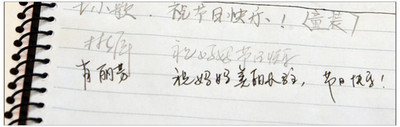 小歌．祝节日快乐！（童装）
祝妈妈节日快乐
肖丽芳 祝妈妈美丽永驻，节日快乐！